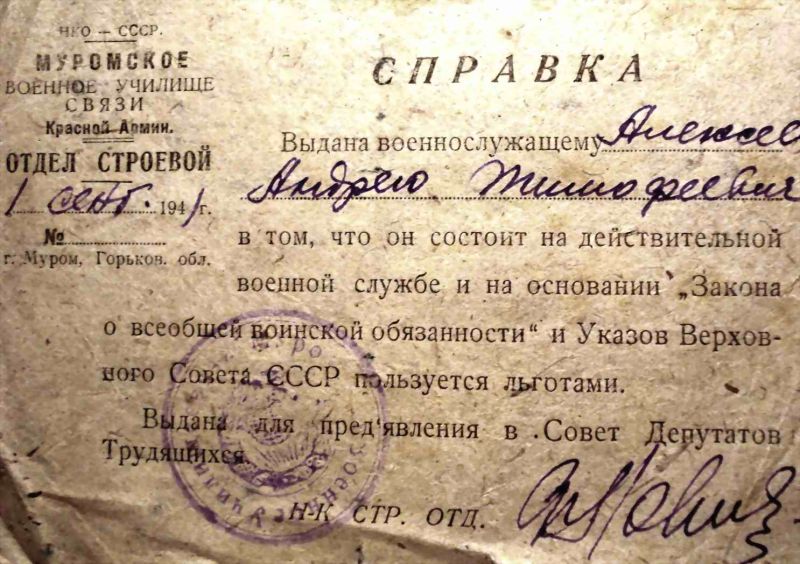 НКО — СССР.
МУРОМСКОЕ
ВОЕННОЕ УЧИЛИЩЕ
СВЯЗИ
Красной Армии.
ОТДЕЛ СТРОЕВОЙ
1 сент. 1941 г.
№
г. Муром, Горьков. обл.
СПРАВКА
Выдана военнослужащему Алексее
Андрею Тимофеевич
в том, что он состоит на действительной
военной службе и на основании „Закона
о всеобщей воинской обязанности“ и Указов Верхов-
ного Совета СССР пользуется льготами.
Выдана для пред'явления в Совет Депутатов
Трудящихся.
Н-К СТР. ОТД.